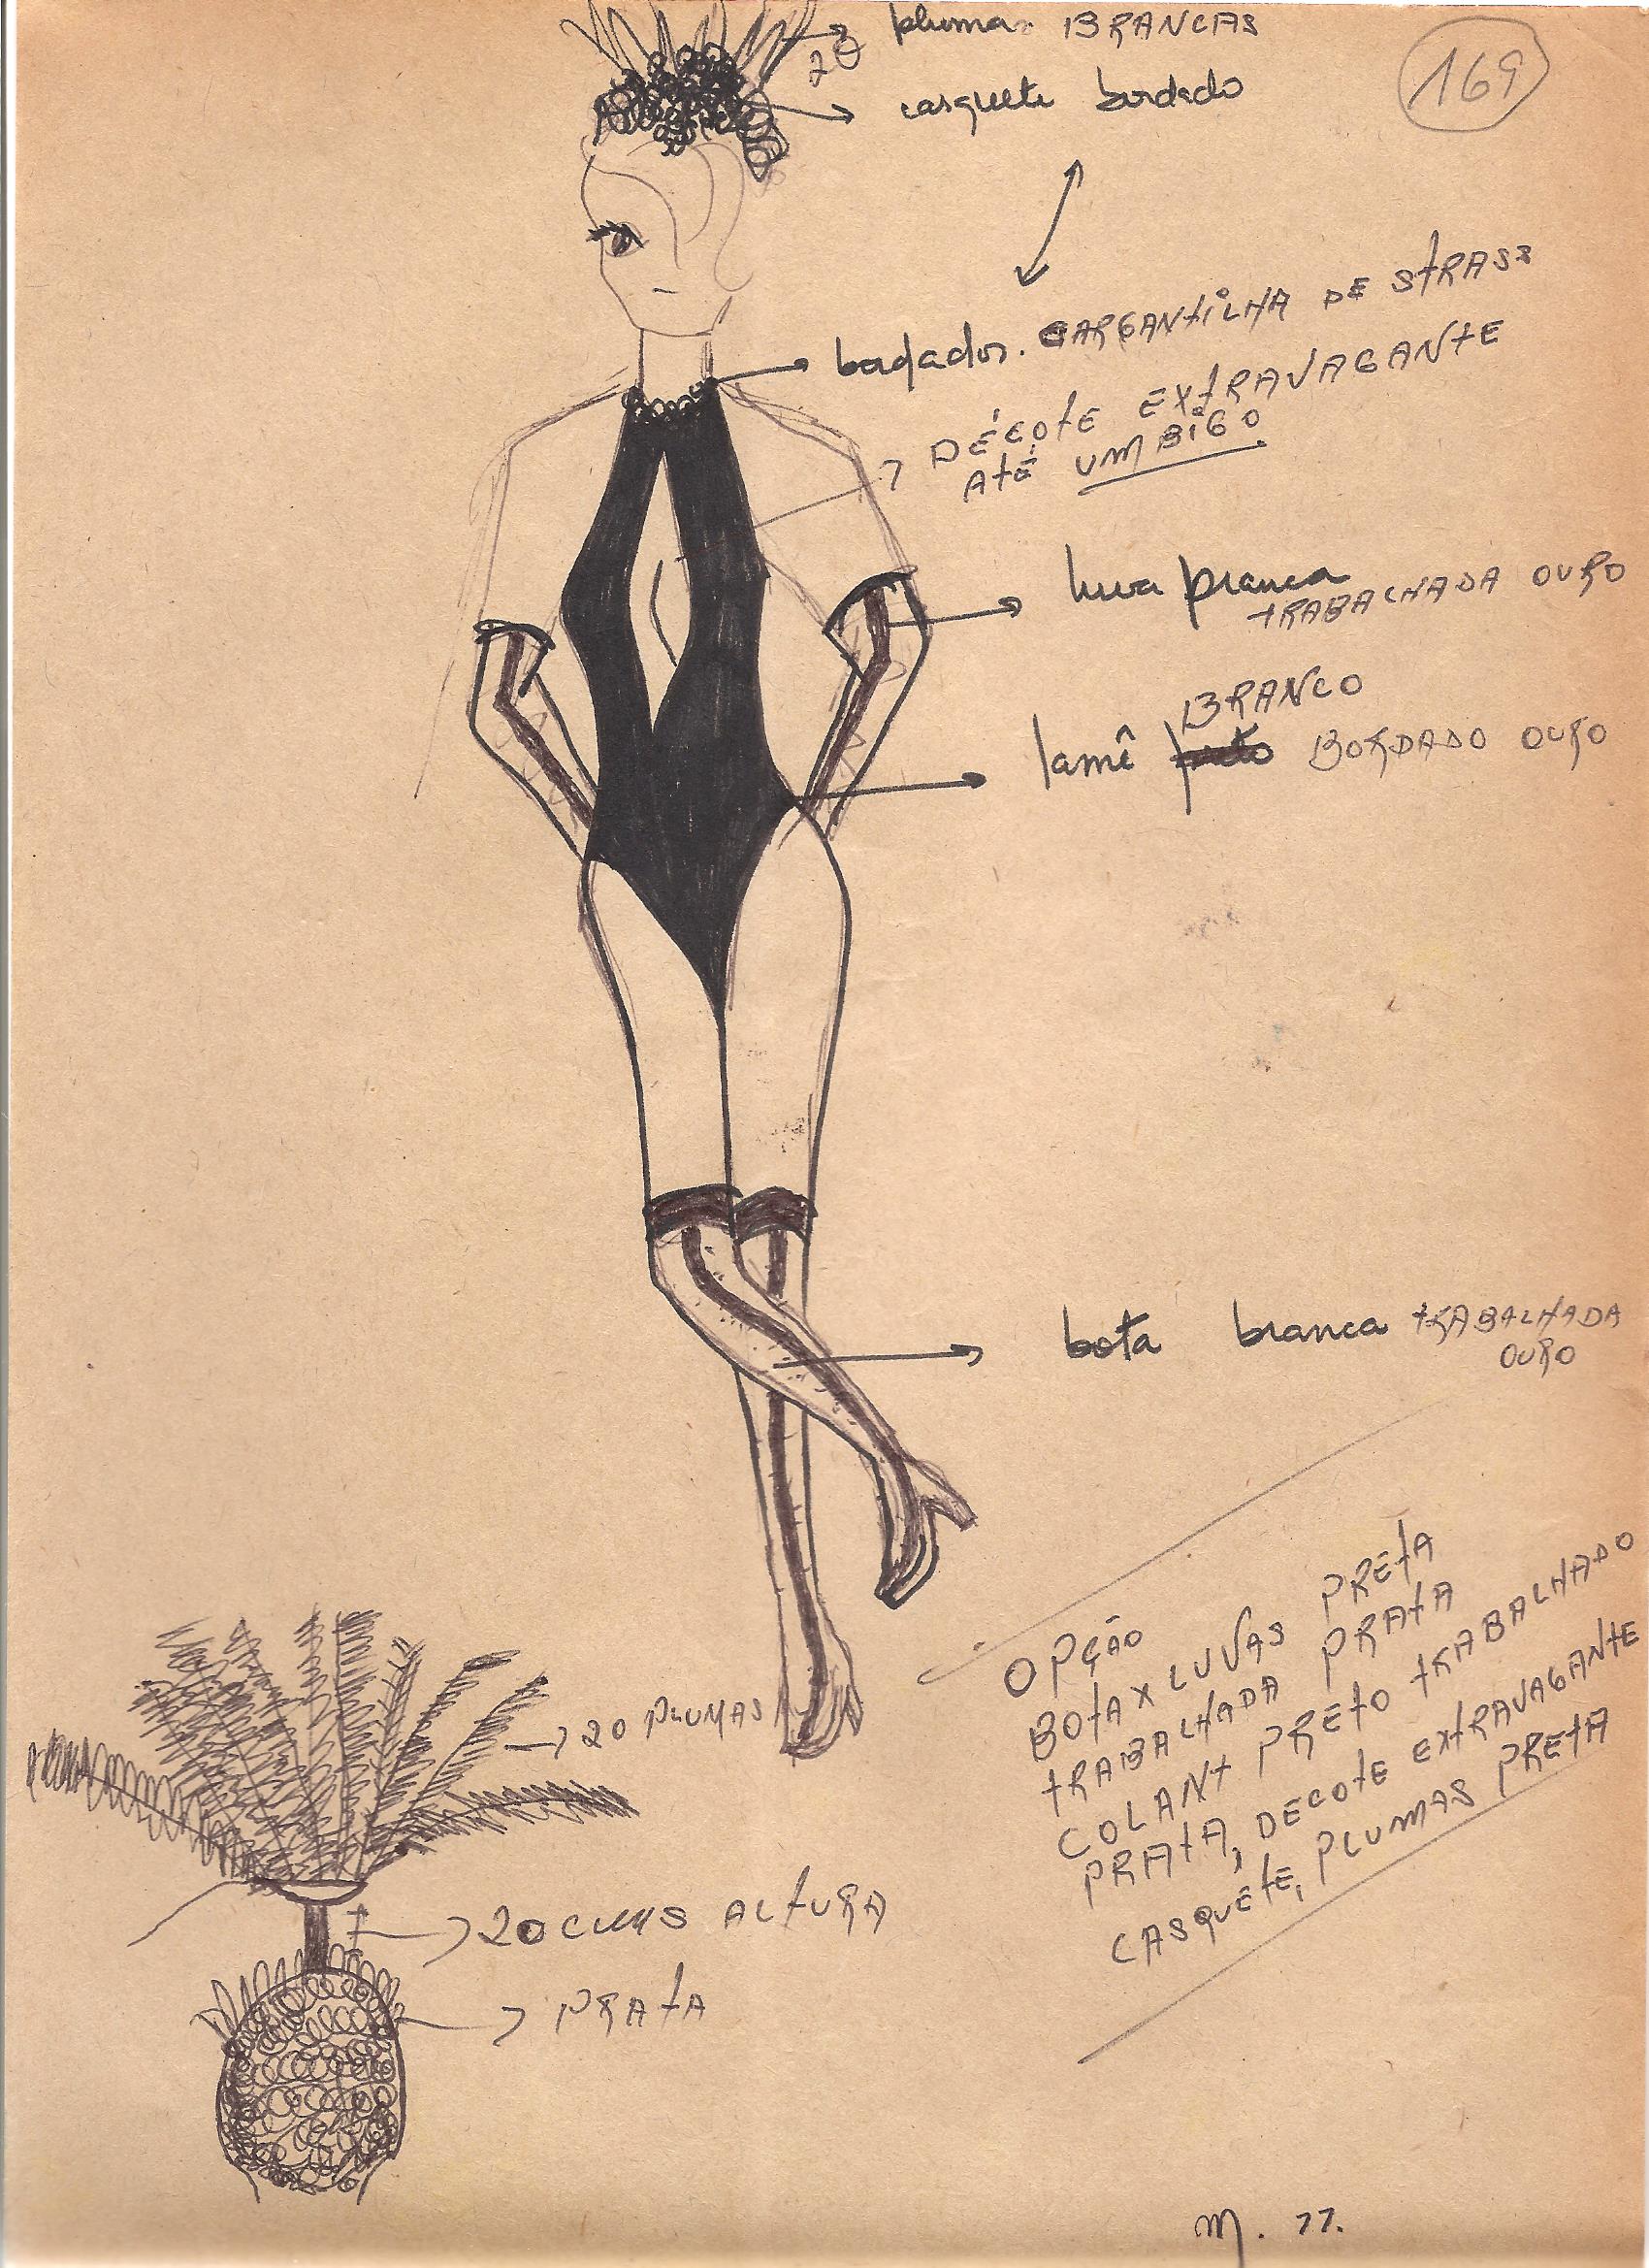 plumas BRANCAS
20
casquete bordado
169
bordados. GARGANTILHA DE STRASS
DÉCOTE EXTRAVAGANTE
ATÉ UMBIGO
luva branca
TRABALHADA OURO
BRANCO
lamê preto BORDADO OURO
bota branca TRABALHADA
OURO
OPÇÃO
BOTA X LUVAS PRETA
TRABALHADA PRATA
COLANT PRETO TRABALHADO
PRATA, DECOTE EXTRAVAGANTE
CASQUÉTE, PLUMAS PRETA
20 PLUMAS
20 CMS ALTURA
PRATA
M. 77.